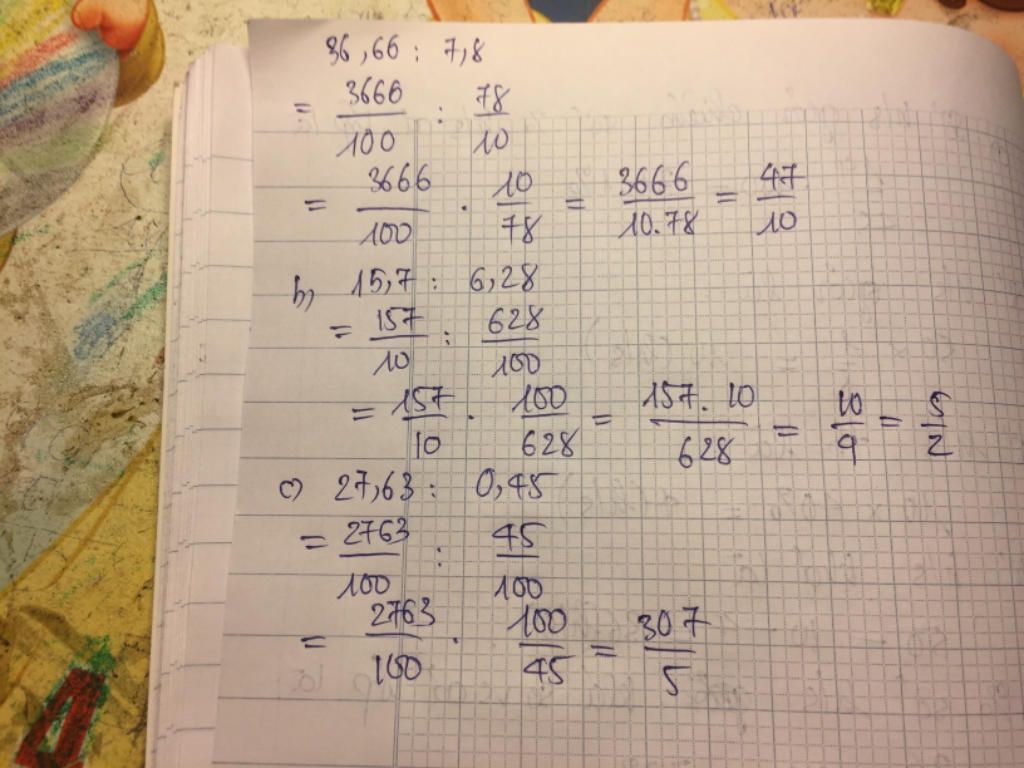 36,66 : 7,8
= 3666/100 : 78/10
= 3666/100 . 10/78 = 3666/10.78 = 47/10
b, 15,7 : 6,28
= 157/10 : 628/100
= 157/10 . 100/628 = 157. 10/628 = 10/4 = 5/2
c) 27,63 : 0,45
= 2763/100 : 45/100
= 2763/100 . 100/45 = 307/5